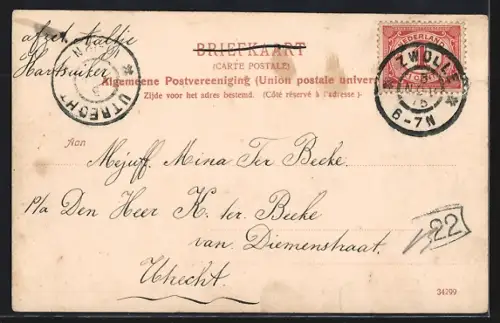 afz. Nallie
Hartsuiker
UTRECHT
BRIEFKAART
(CARTE POSTALE)
Algemeene Postvereeniging (Union postale univer
Zijde voor het adres bestemd. (Côté réservé à l'adresse).
NEDERLAND
1
ZWOLLE
6-7N
Aan
Mejuff. Mina Ter Beeke.
p/a Den Heer K. ter Beeke
van Diemenstraat.
Utrecht.
22
34799